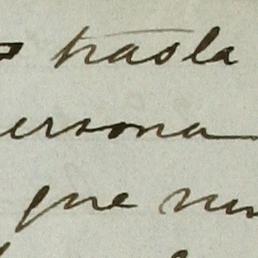 trasla
ersona
que nun